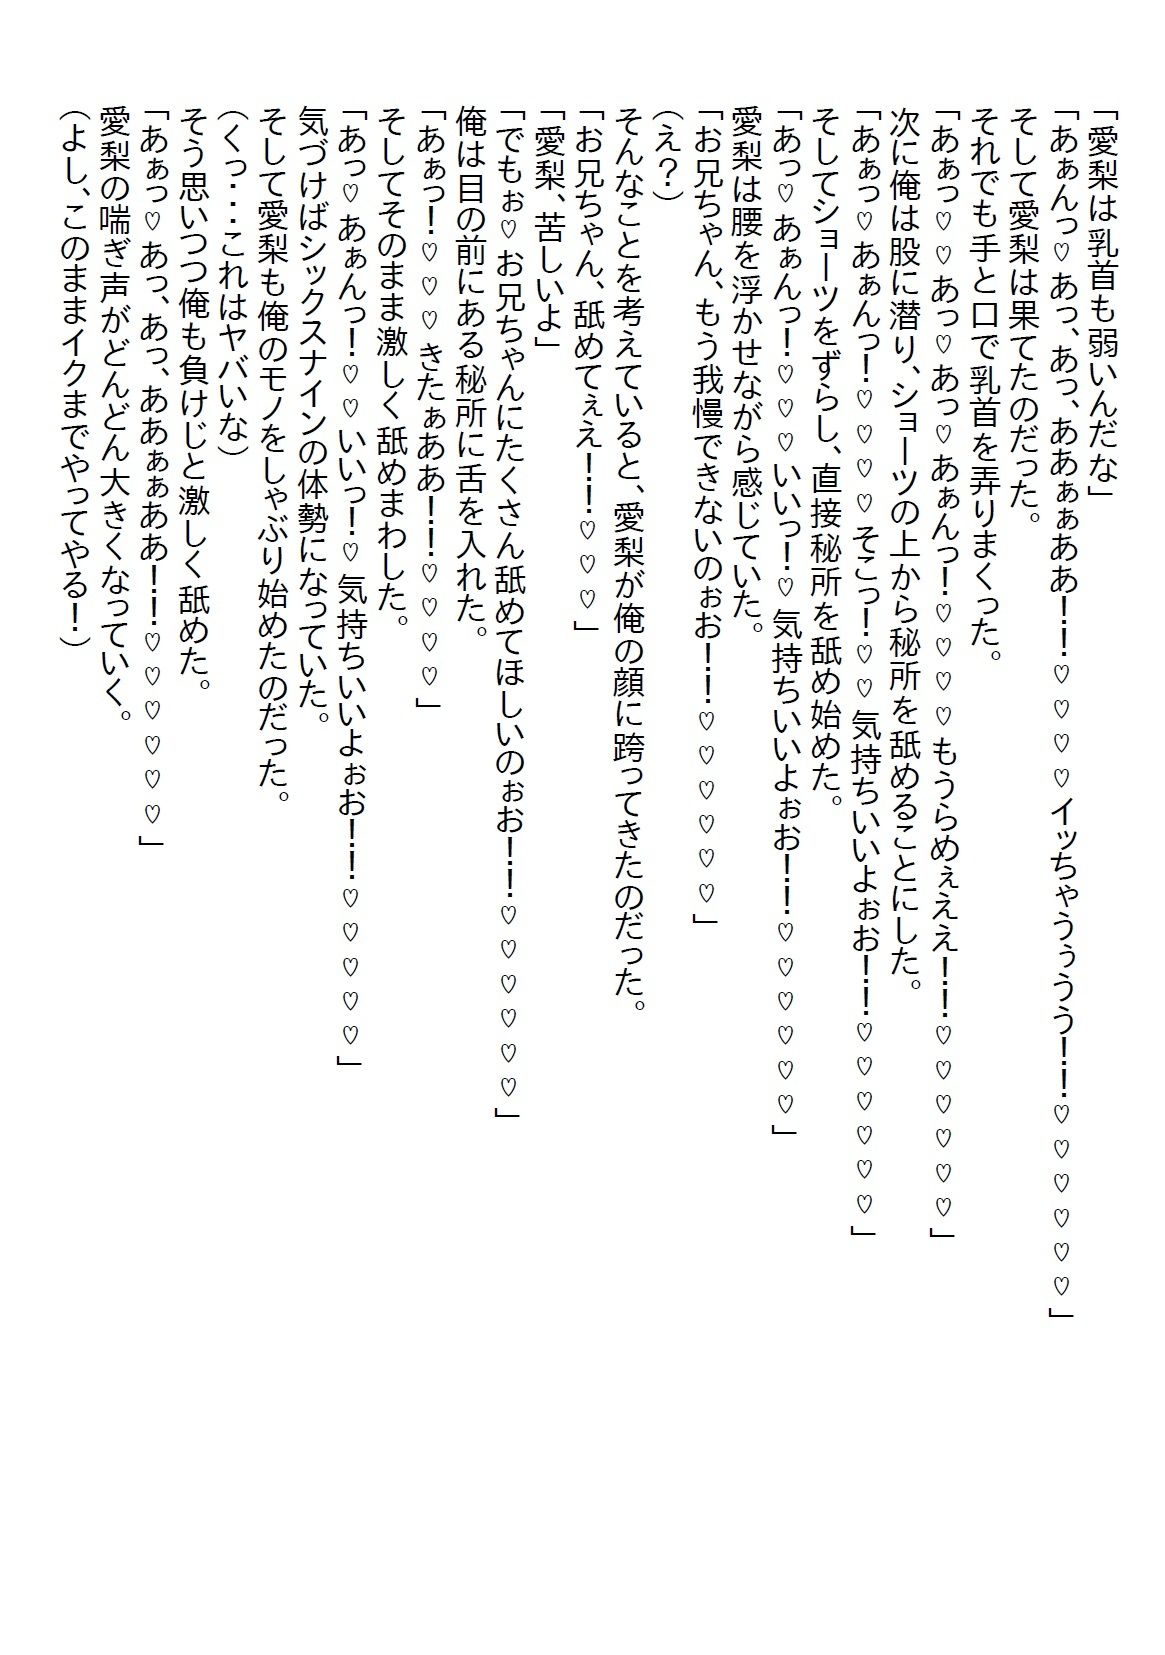 「愛梨は乳首も弱いんだな」
「あぁんっ♡あっ、あっ、ああぁぁああ！！♡♡♡♡イッちゃうぅうう！！♡♡♡♡♡♡」
そして愛梨は果てたのだった。
それでも手と口で乳首を弄りまくった。
「あぁっ♡♡あっ♡あっ♡あぁんっ！♡♡♡♡もうらめぇええ！！♡♡♡♡♡♡」
次に俺は股に潜り、ショーツの上から秘所を舐めることにした。
「あぁっ♡あぁんっ！♡♡♡♡そこっ！♡♡気持ちいいよぉお！！♡♡♡♡♡♡」
そしてショーツをずらし、直接秘所を舐め始めた。
「あっ♡あぁんっ！♡♡♡いいっ！♡気持ちいいよぉお！！♡♡♡♡♡♡」
愛梨は腰を浮かせながら感じていた。
「お兄ちゃん、もう我慢できないのぉお！！♡♡♡♡♡♡」
（え？）
そんなことを考えていると、愛梨が俺の顔に跨ってきたのだった。
「お兄ちゃん、舐めてぇえ！！♡♡♡」
「愛梨、苦しいよ」
「でもぉ♡お兄ちゃんにたくさん舐めてほしいのぉお！！♡♡♡♡♡♡」
俺は目の前にある秘所に舌を入れた。
「あぁっ！♡♡♡きたぁああ！！♡♡♡♡」
そしてそのまま激しく舐めまわした。
「あっ♡あぁんっ！♡♡いいっ！♡気持ちいいよぉお！！♡♡♡♡♡」
気づけばシックスナインの体勢になっていた。
そして愛梨も俺のモノをしゃぶり始めたのだった。
（くっ・・・これはヤバいな）
そう思いつつ俺も負けじと激しく舐めた。
「あぁっ♡あっ、あっ、ああぁぁああ！！♡♡♡♡♡♡」
愛梨の喘ぎ声がどんどん大きくなっていく。
（よし、このままイクまでやってやる！）